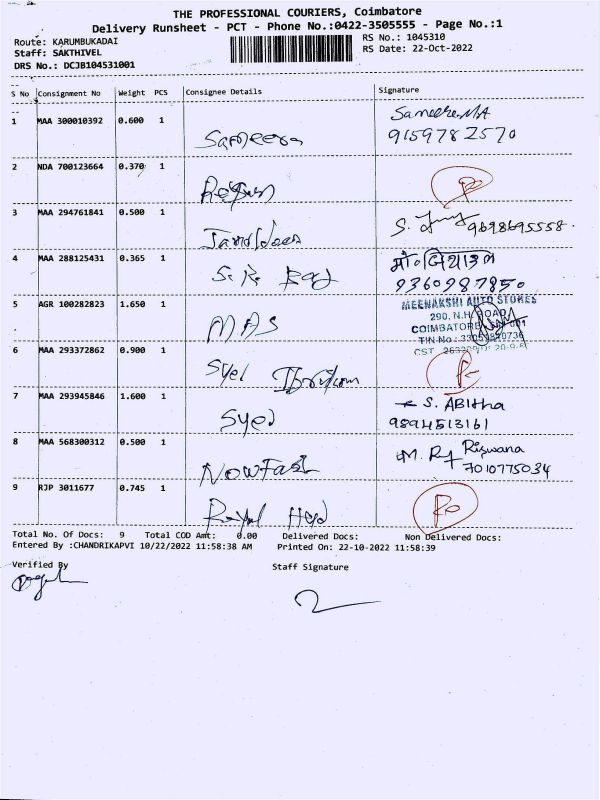 THE PROFESSIONAL COURIERS, Coimbatore
Delivery Runsheet - PCT - Phone No.:0422-3505555 - Page No.:1
Route: KARUMBUKADAI
RS No.: 1045310
Staff: SAKTHIVEL
RS Date: 22-Oct-2022
DRS No.: DCJB104531001
S No Consignment No Weight PCS Consignee Details Signature
1 MAA 300010392 0.600 1 Sameera
9159782570
2 NDA 700123664 0.370 1
3 MAA 294761841 0.500 1 S. 9698695558.
4 MAA 288125431 0.365 1 S. K.
9360987850
5 AGR 100282823 1.650 1 MAS
MEENAKSHI AUTO STORES
290, N.H. ROAD
COIMBATORE
TIN No
CST
6 MAA 293372862 0.900 1 Syel Ibrahim
7 MAA 293945846 1.600 1 Syed S. ABitha
9894513161
8 MAA 568300312 0.500 1 Nowfash M. Riswana
7010775034
9 RJP 3011677 0.745 1 Royal
Total No. Of Docs: 9 Total COD Amt: 0.00 Delivered Docs: Non Delivered Docs:
Entered By :CHANDRIKAPVI 10/22/2022 11:58:38 AM Printed On: 22-10-2022 11:58:39
Verified By
Staff Signature